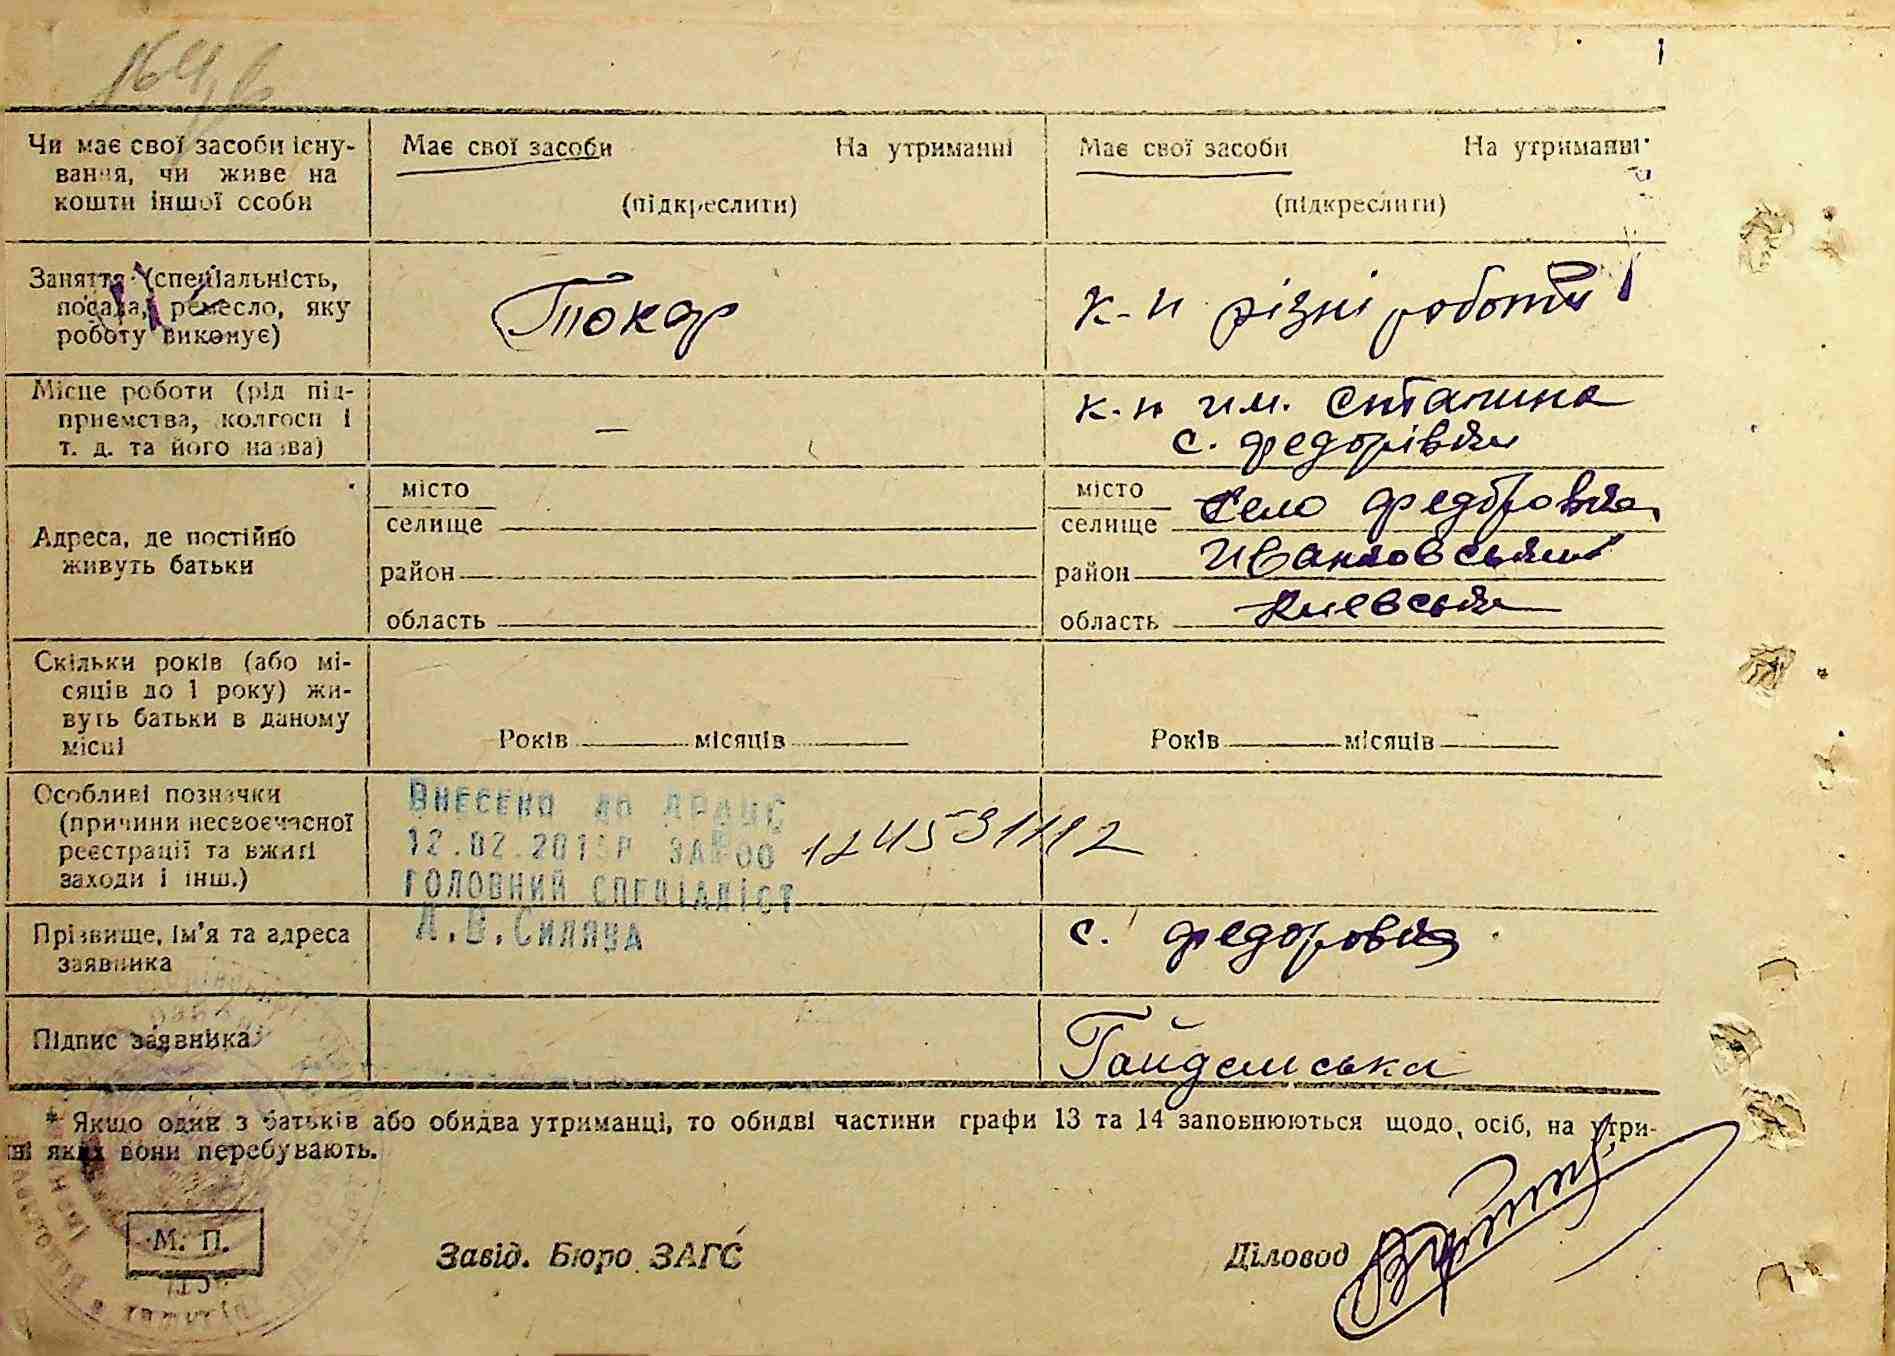 Чи має свої засоби існу-
вання, чи живе на
кошти іншої особи
Має свої засоби На утриманні
(підкреслити)
Має свої засоби На утриманні
(підкреслити)
Заняття (спеціальність,
посада, ремесло, яку
роботу виконує)
Токар
к-п різні роботи
Місце роботи (рід під-
приємства, колгосп і
т. д. та його назва)
—
к-п им. Сталина
с. Федорівка
Адреса, де постійно
живуть батьки
місто
селище
район
область
місто
селище Село Федоровка
район Иванковський
область Киевська
Скільки років (або мі-
сяців до 1 року) жи-
вуть батьки в даному
місці
Років місяців
Років місяців
Особливі позначки
(причини несвоєчасної
реєстрації та вжиті
заходи і інш.)
ВНЕСЕНО ДО ДРАЦС
12.02.2015Р ЗА
ГОЛОВНИЙ СПЕЦІАЛІСТ
Прізвище, ім'я та адреса
заявника
с. Федоровка
Підпис заявника
* Якщо один з батьків або обидва утриманці, то обидві частини графи 13 та 14 заповнюються щодо осіб, на утри-
ні яких вони перебувають.
М. П.
Завід. Бюро ЗАГС
Діловод